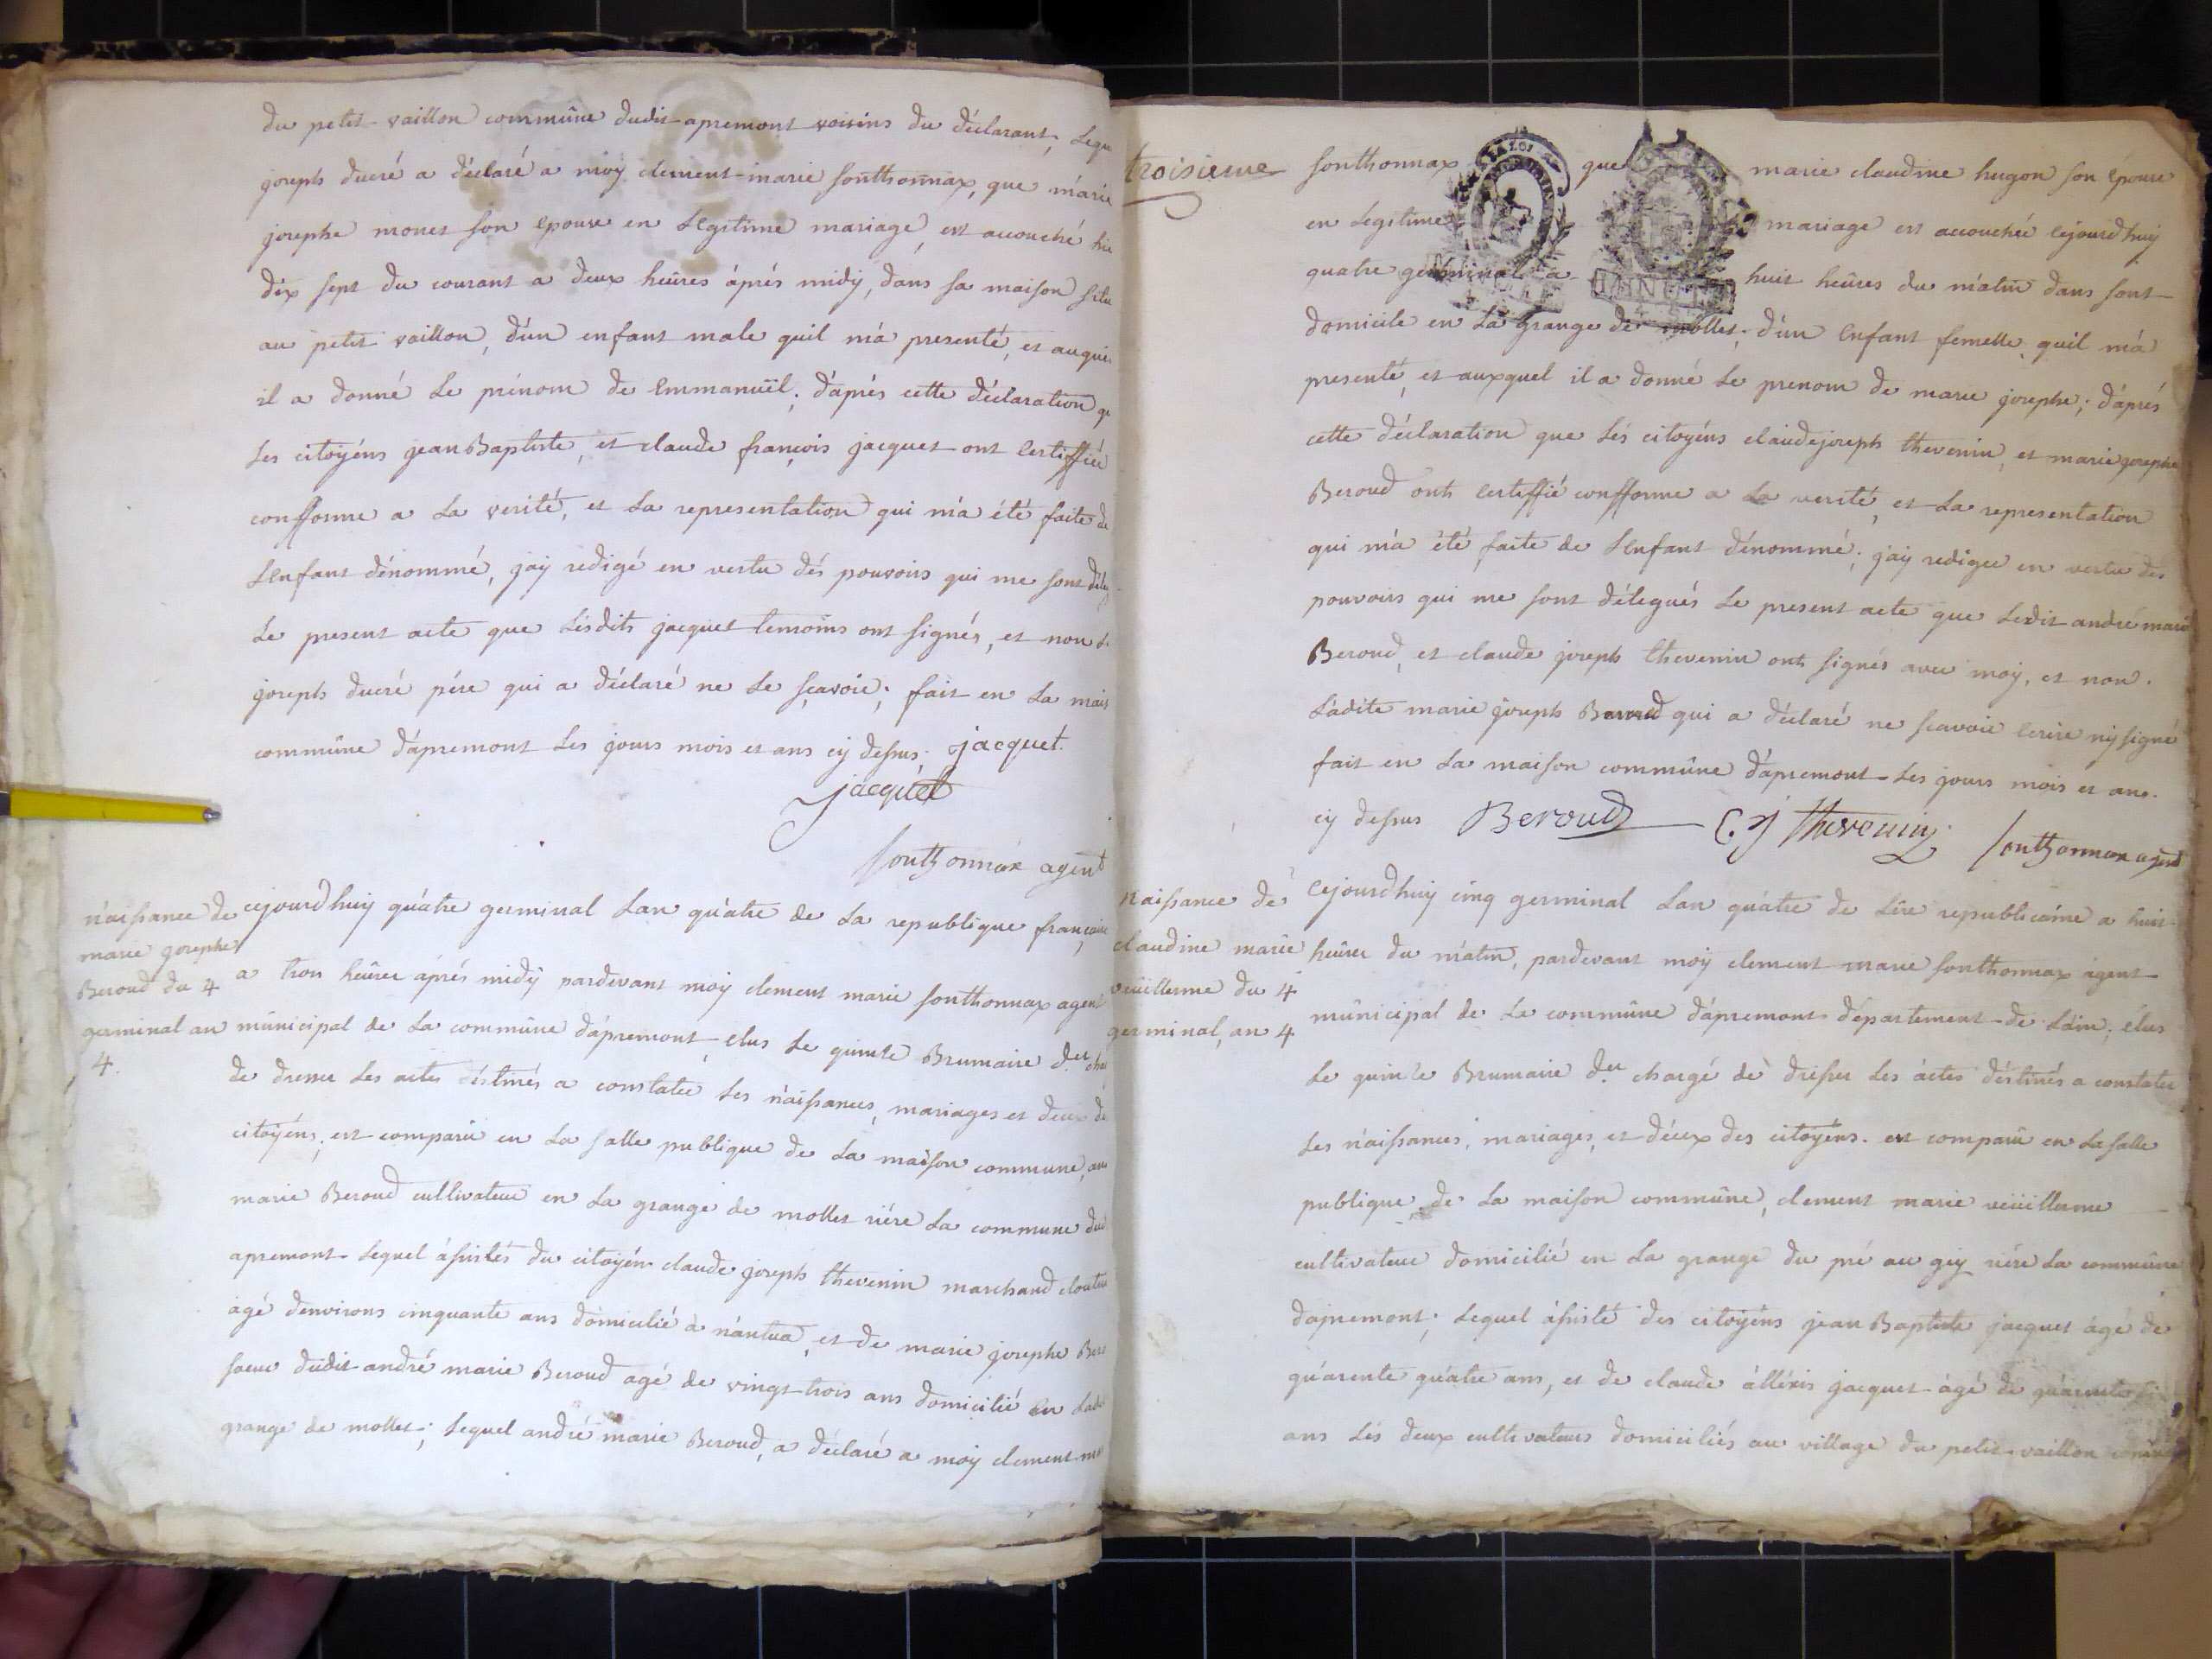 du petit vaillon commûne dudit apremont voisins du déclarant, Lequ
joseph ducré a déclaré a moÿ clement-marie sonthonnax, que marie
josephe monet son epouse en Legitime mariage, est accouché hie
dix sept du courant a deux heûres áprés midÿ, dans sa maison situ
au petit vaillon, dún enfant male quil má presenté, et auquel
il a donné Le prénom de Emmanuël; dáprés cette déclaration que
Les citoÿéns jean Baptiste, et claude françois jacquet ont Certiffiéé
confforme a La verité, et La representation qui má été faite de
LEnfant dénommé, jaÿ redigé en vertu dés pouvoirs qui me sont déleg
Le present acte que Lésdits jacquet temoins ont signés, et non Le
joseph ducré pére qui a déclaré ne Le sçavoir; fait en La mais
commûne dápremont Les jours mois et ans cÿ dessus. jacquet.
jacquet
sonthonnax agent
náissance de
marie josephe
Beroud du 4
germinal an
4.
cejourdhuÿ quátre germinal Lan quátre de La republique francaise,
a trois heûres áprés midÿ pardevant moÿ clement marie sonthonnax agent
mûnicipal de La commûne dápremont, elus Le quinte Brumaire der. char
de dresser Les actes déstinés a constater Les náissances, mariages et decex de
citoÿéns; est comparû en La salle publique de La maison commune, an
marie Beroud cultivateur en La grange de mollet riére La commune dud
apremont Lequel ássistés du citoÿén claude joseph thevenin marchand cloutier
agé denvirons cinquante ans domicilié a nántua, et de marie josephe Bero
soeur dudit andré marie Beroud agé de vingt trois ans domicilié en Ladi
grange de mollet; Lequel andré marie Beroud, a déclaré a moÿ clement ma
troisieme
sonthonnax que marie claudine hugon son Epouse
en Legitime mariage est accouchéé cejourdhuÿ
quatre germinal a huit heûres du mátin dans sont
domicile en La grange de mollet, dún Enfant femelle quil má
presenté, et auxquel il a donné Le prenom de marie josephe; dáprés
cette déclaration que Lés citoÿéns claudejoseph thevenin, et marie josephe
Beroud ont Certiffié confforme a La verité, et La representation
qui má été faite de LEnfant dénommé; jaÿ redigee en vertu des
pouvoirs qui me sont délegués Le present acte que Ledit andré marie
Beroud, et claude joseph thevenin ont signés avec moÿ, et non.
Ládite marie joseph Beroud qui a déclaré ne scavoir Ecrire nÿ signé
fait en La maison commûne dápremont Les jours mois et ans.
cÿ dessus Beroud C. j thevenin. sonthonnax agent
naissance de
claudine marie
vuillerme du 4
germinal, an 4
Cejourdhuÿ cinq germinal Lan quátre de Lére republicáine a huit
heûres du mátin, pardevant moÿ clement marie sonthonnax ágent
mûnicipal de La commûne dápremont département de Láin, elus
Le quinte Brumaire der. chargé de drésser Les áctes déstinés a constater
Les náissances, mariages, et décex des citoÿéns. est comparû en La salle
publique de La maison commûne, clement marie veüillerme
cultivateur domicilié en La grange du pré au gÿ riére La commûne
dapremont; Lequel ássisté des citoÿéns jean Baptiste jacquet ágé de
quárente quátre ans, et de claude álléxis jacquet ágé de quarente
ans Lés deux cultivateurs domiciliés au village du petit vaillon